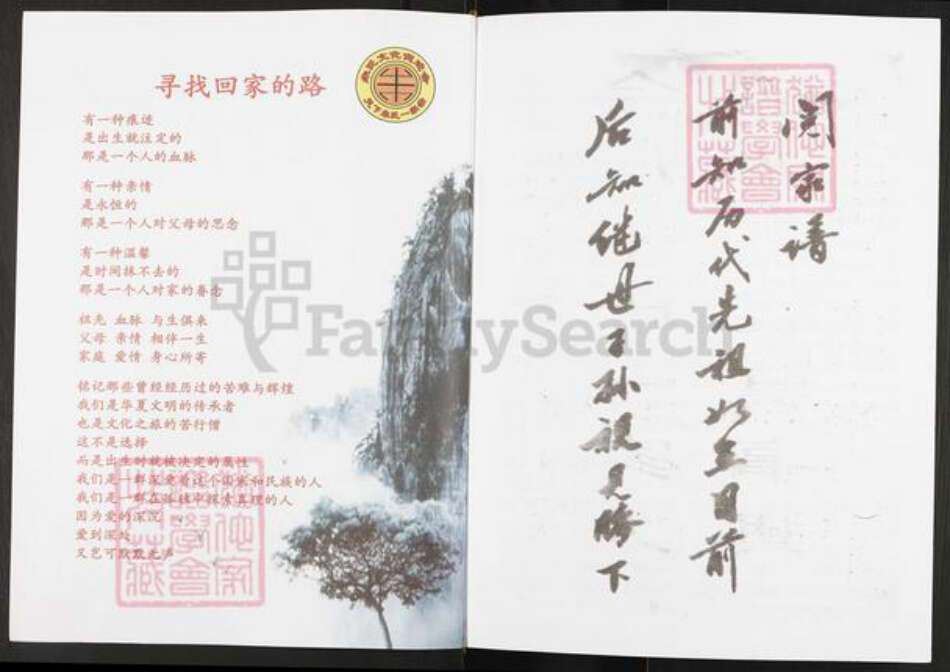 寻找回家的路
有一种痕迹
是出生就注定的
那是一个人的血脉
有一种亲情
是永恒的
那是一个人对父母的思念
有一种温馨
是时间抹不去的
那是一个人对家的眷念
祖先 血脉 与生俱来
父母 亲情 相伴一生
家庭 爱情 身心所寄
铭记那些曾经经历过的苦难与辉煌
我们是华夏文明的传承者
也是文化之旅的苦行僧
这不是选择
而是出生时就被决定的属性
我们是一群深爱着这个国家和民族的人
我们是一群在孤独中探索真理的人
因为爱的深沉
爱到深处
又岂可默默无声
FamilySearch
阅家谱
前知历代先祖如在目前
后知继世子孙视见膝下